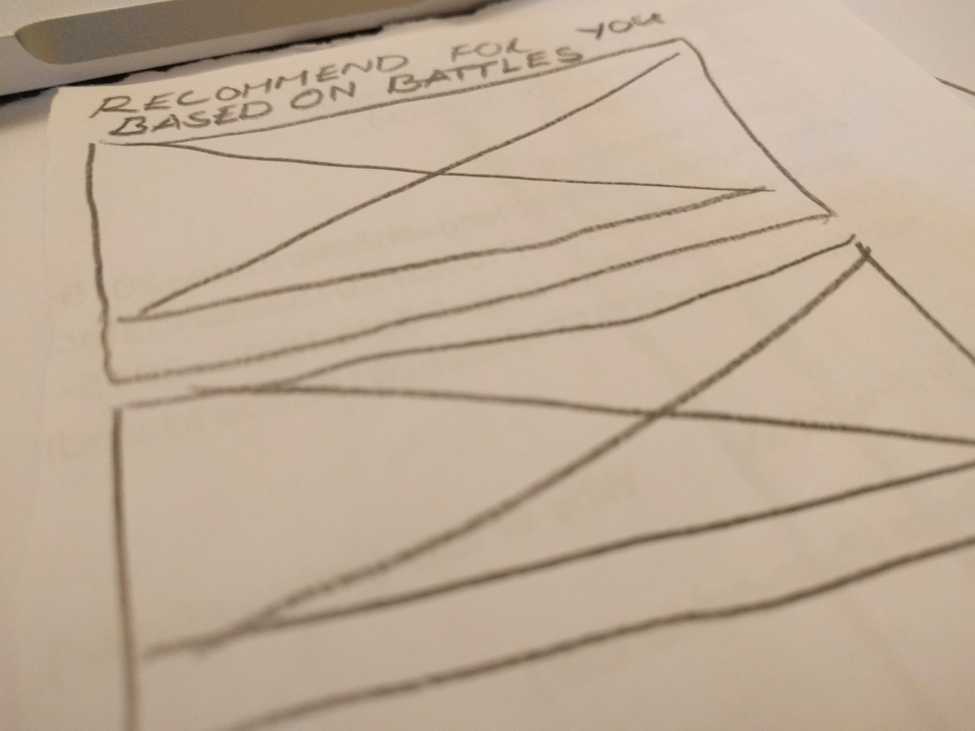 RECOMMEND FOR YOU
BASED ON BATTLES